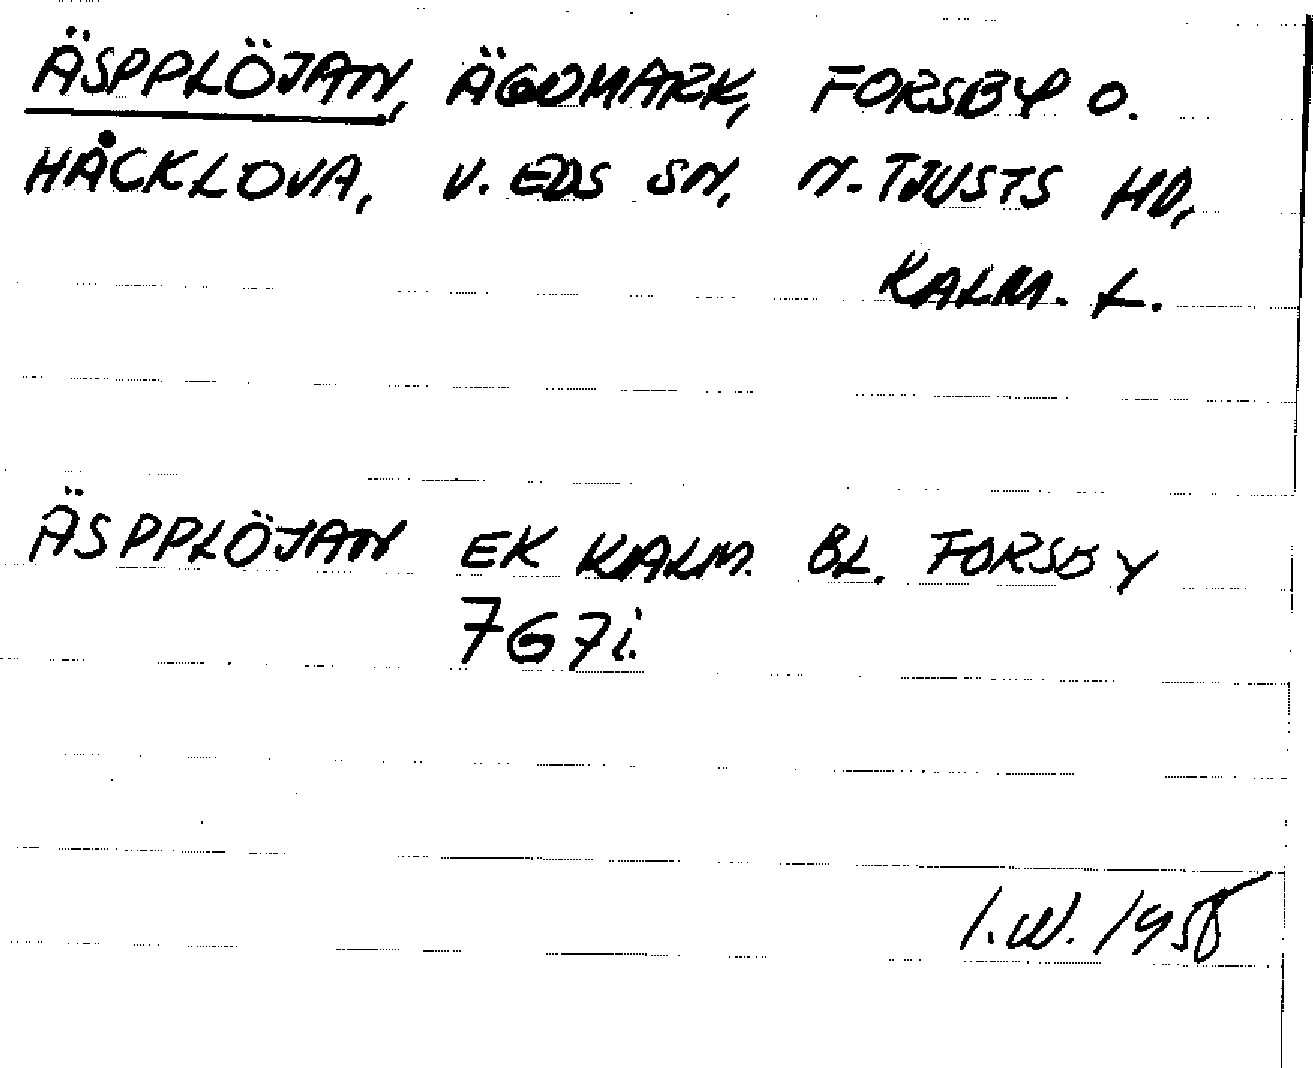 ÄSPPLÖJAN, ÄGOMARK, FORSBY O.
HÅCKLOVA, V. EDS SN, N. TJUSTS HD,
KALM. L.
ÄSPPLÖJAN EK KALM. BL. FORSBY
7G7i.
I.W. 1958